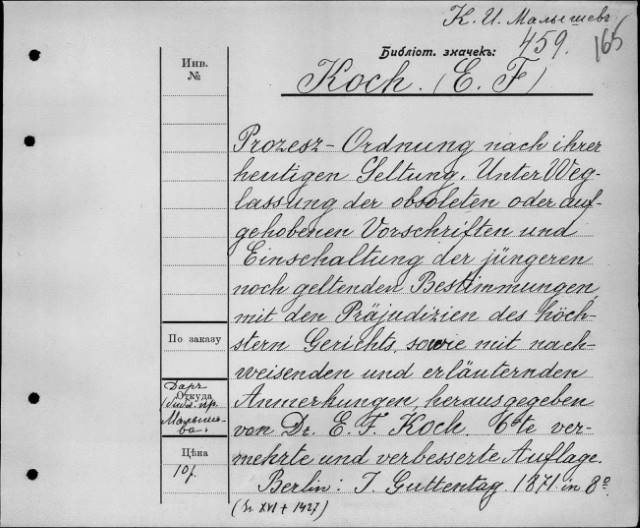 К. И. Малышевъ
165
Библіот. значекъ: 459.
Инв.
№
Koch. (E. F)
Prozesz-Ordnung nach ihrer
heutigen Geltung. Unter Weg-
lassung der obsoleten oder auf-
gehobenen Vorschriften und
Einschaltung der jüngeren
noch geltenden Bestimmungen
mit den Präjudizien des höch-
stern Gerichts, sowie mit nach-
weisenden und erläuternden
Anmerkungen, herausgegeben
von Dr. E. F. Koch. 6te ver-
mehrte und verbesserte Auflage.
Berlin: J. Guttentag 1871 in 8º
XVI + 1427)
По заказу
Откуда
Даръ
Малыше-
ва.
Цѣна
10 р.